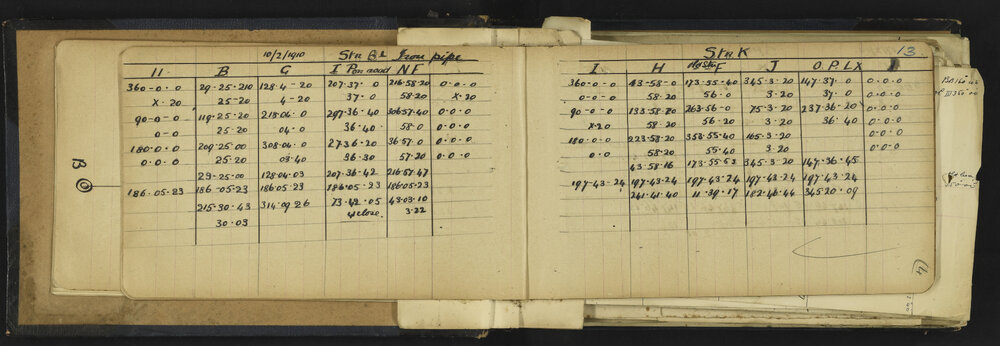 10/2/1910 Stn B² Iron pipe
11 B G I Pen road NF
360-0-0 29·25·210 128·4-20 207·37·0 216·58·20 0·0·0
X·20 25-20 4-20 37·0 58·20 X·20
90-0-0 119·25·00 218·04·0 297·36·40 306·57·40 0·0·0
0-0 25·20 04·0 36·40 58·0 0·0·0
180·0·0 209·25·00 308·04·0 27·36·20 36·57·0 0·0·0
0·0·0 25·20 03·40 36·30 57·20 0·0·0
29·25·00 128·04·03 207·36·42 216·57·47
186·05·23 186·05·23 186·05·23 186·05·23 186·05·23
215·30·43 314·09·26 73·42·05 43·03·10
close 3·22
30·03
B
Stn K 13
I H F J O.P.LX
360-0-0 43-58-0 173·55·40 345·3·20 147·37·0 0·0·0
0-0 58·20 56·0 3·20 37·0 0·0·0
90-0-0 133·58·20 263·56-0 75·3·20 237·36·20 0·0·0
X·20 58·20 56·20 3·20 36·40 0·0·0
180·0·0 223·58·20 353·55·40 165·3·20 0·0·0
0·0 58·20 55·40 3·20 0·0·0
43·58·16 173·55·53 345·3·20 147·36·45
197-43-24 197·43·24 197·43·24 197·43·24 197·43·24
241·41·40 11·39·17 182·46·44 345·20·09